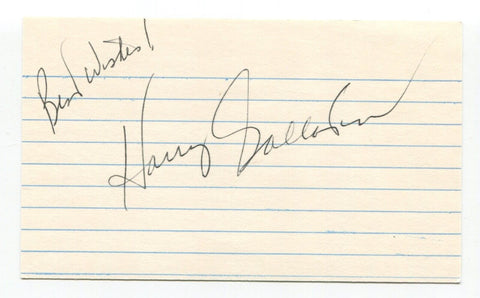 Best Wishes!
Harry Gallatin